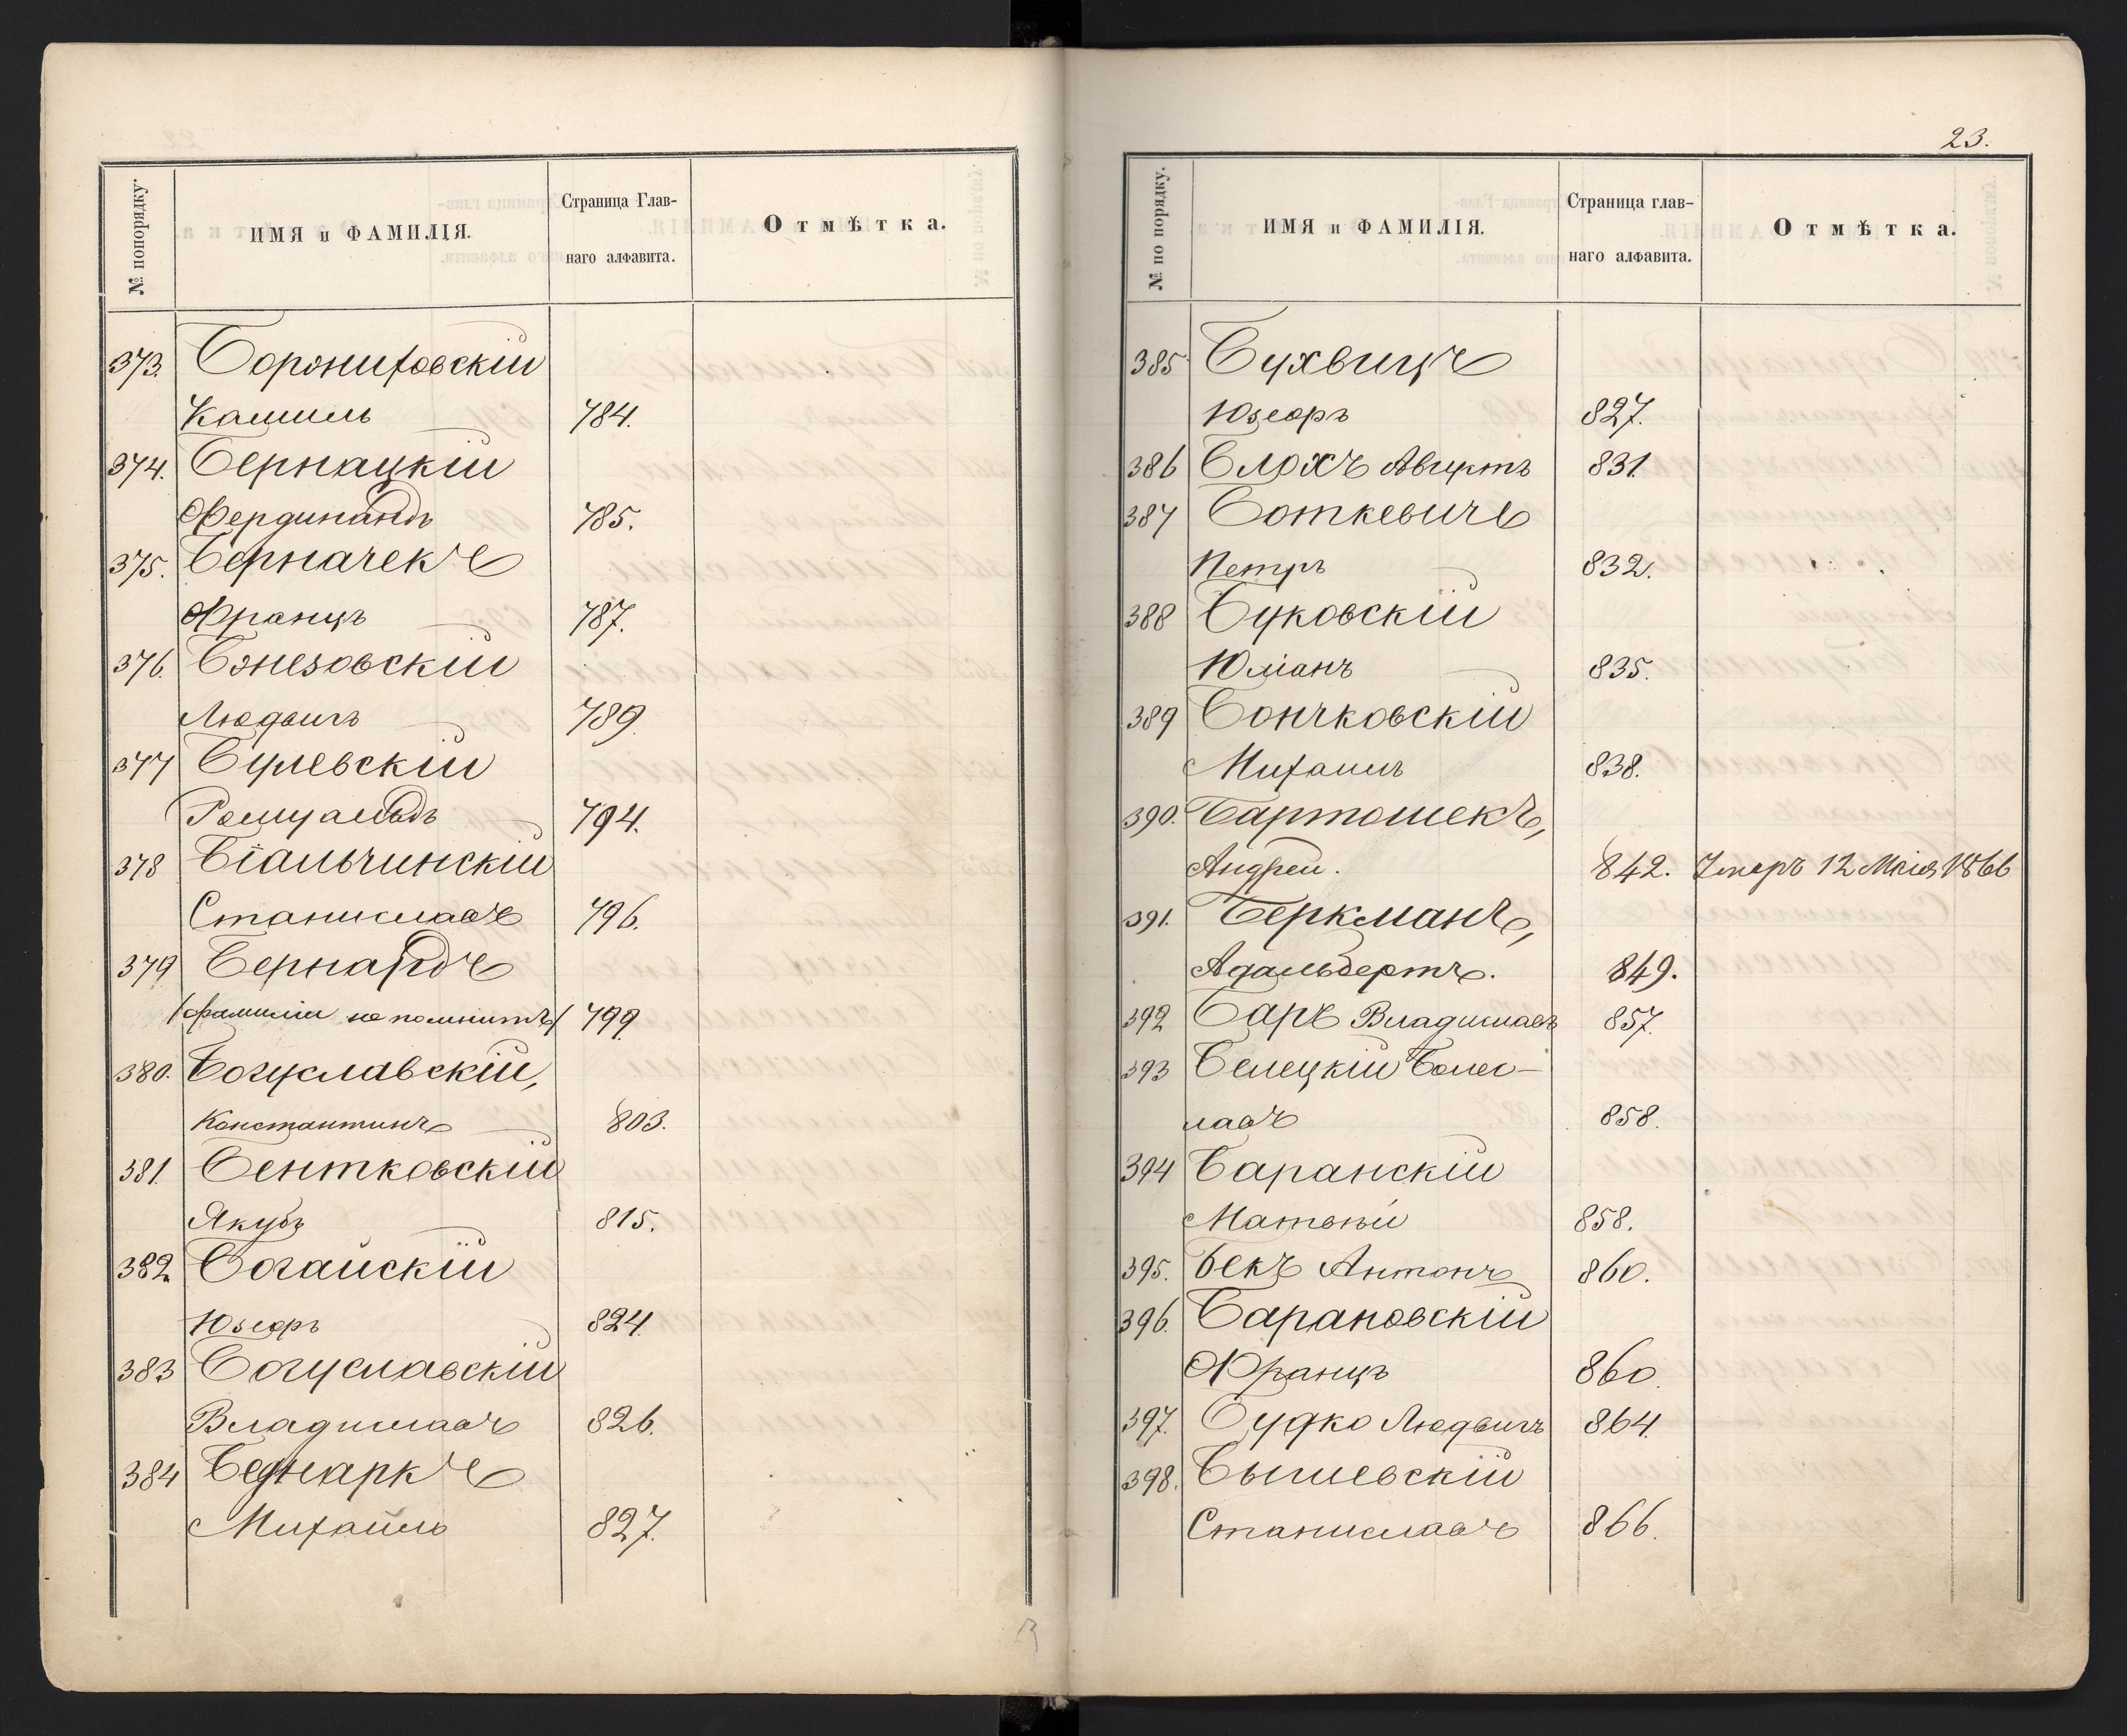 № попорядку.
ИМЯ и ФАМИЛІЯ.
Страница Глав-
наго алфавита.
Отмѣтка.
373. Борониховскій
Камиль 784.
374. Бернацкій
Фердинандъ 785.
375. Берначекъ
Францъ 787.
376. Бжезовскій
Людвигъ 789.
377 Булевскій
Ромуальдъ 794.
378 Біальчинскій
Станиславъ 796.
379 Бернардъ
/фамиліи не помнитъ/ 799.
380. Богуславскій,
Константинъ 803.
381. Бентковскій
Якубъ 815.
382. Богайскій
Юзефъ 824.
383 Богуславскій
Владиславъ 826.
384 Беднаркъ
Михаилъ 827.
23.
№ по порядку.
ИМЯ и ФАМИЛІЯ.
Страница глав-
наго алфавита.
Отмѣтка.
385 Бухвицъ
Юзефъ 827.
386 Блохъ Августъ 831.
387 Боткевичъ
Петръ 832.
388 Буковскій
Юліанъ 835.
389 Бончковскій
Михаилъ 838.
390. Бартошекъ,
Андрей. 842. Умеръ 12 Мая 1866
391. Беркманъ,
Адальбертъ. 849.
392 Баръ Владиславъ 857.
393 Белецкій Болес-
лавъ 858.
394 Баранскій
Матвѣй 858.
395. Бекъ Антонъ 860.
396. Барановскій
Францъ 860.
397. Будко Людвигъ 864.
398. Бышевскій
Станиславъ 866.